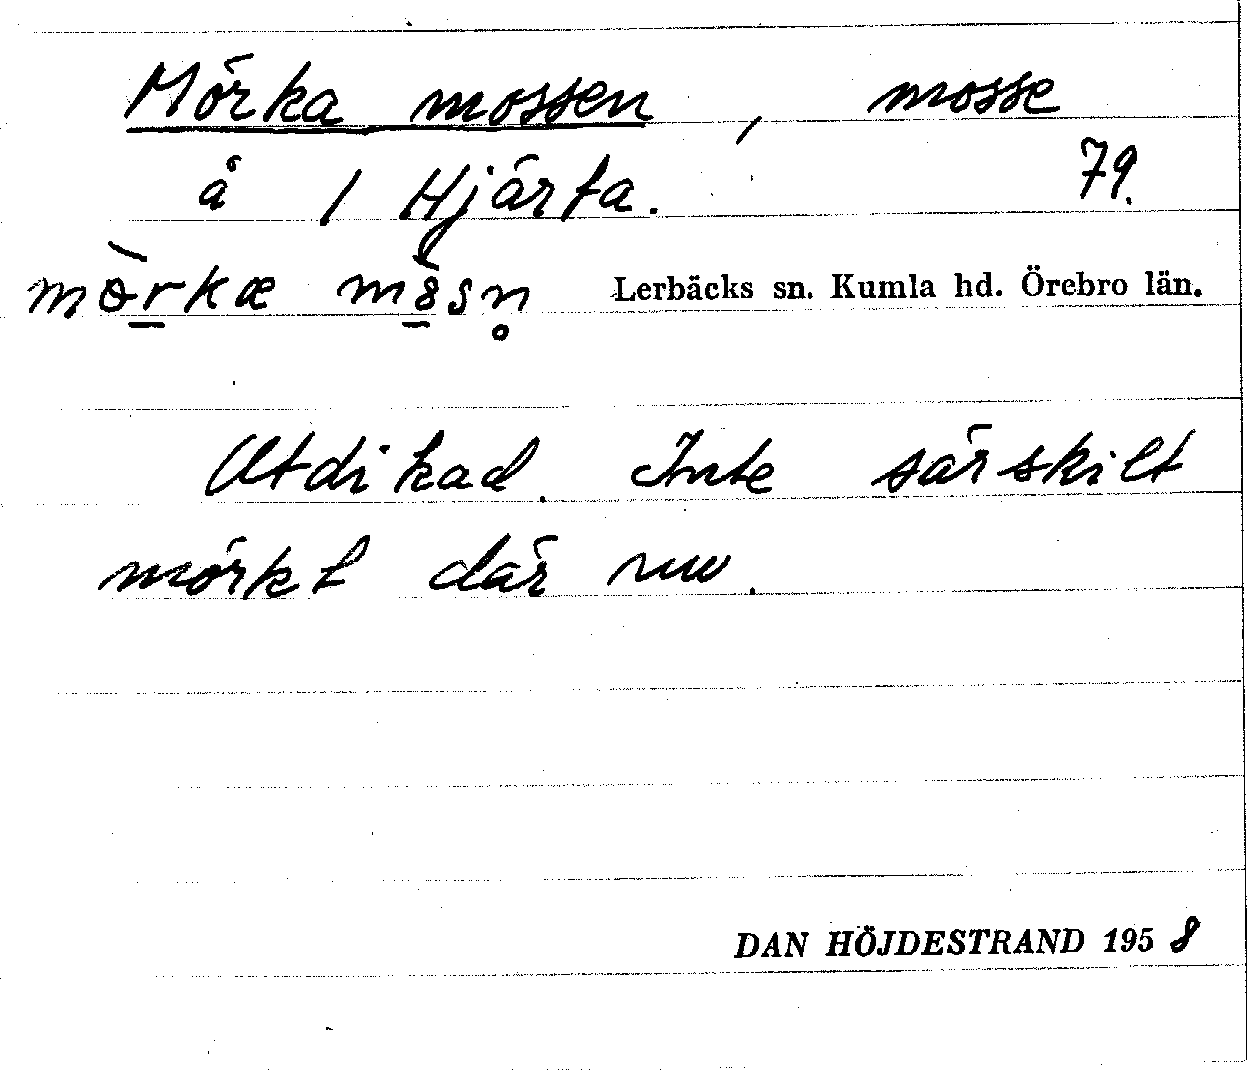 Mörka mossen, mosse
å 1 Hjärta. 79.
mörkæ Lerbäcks sn. Kumla hd. Örebro län.
Utdikad. Inte särskilt
mörkt där nu.
DAN HÖJDESTRAND 1958